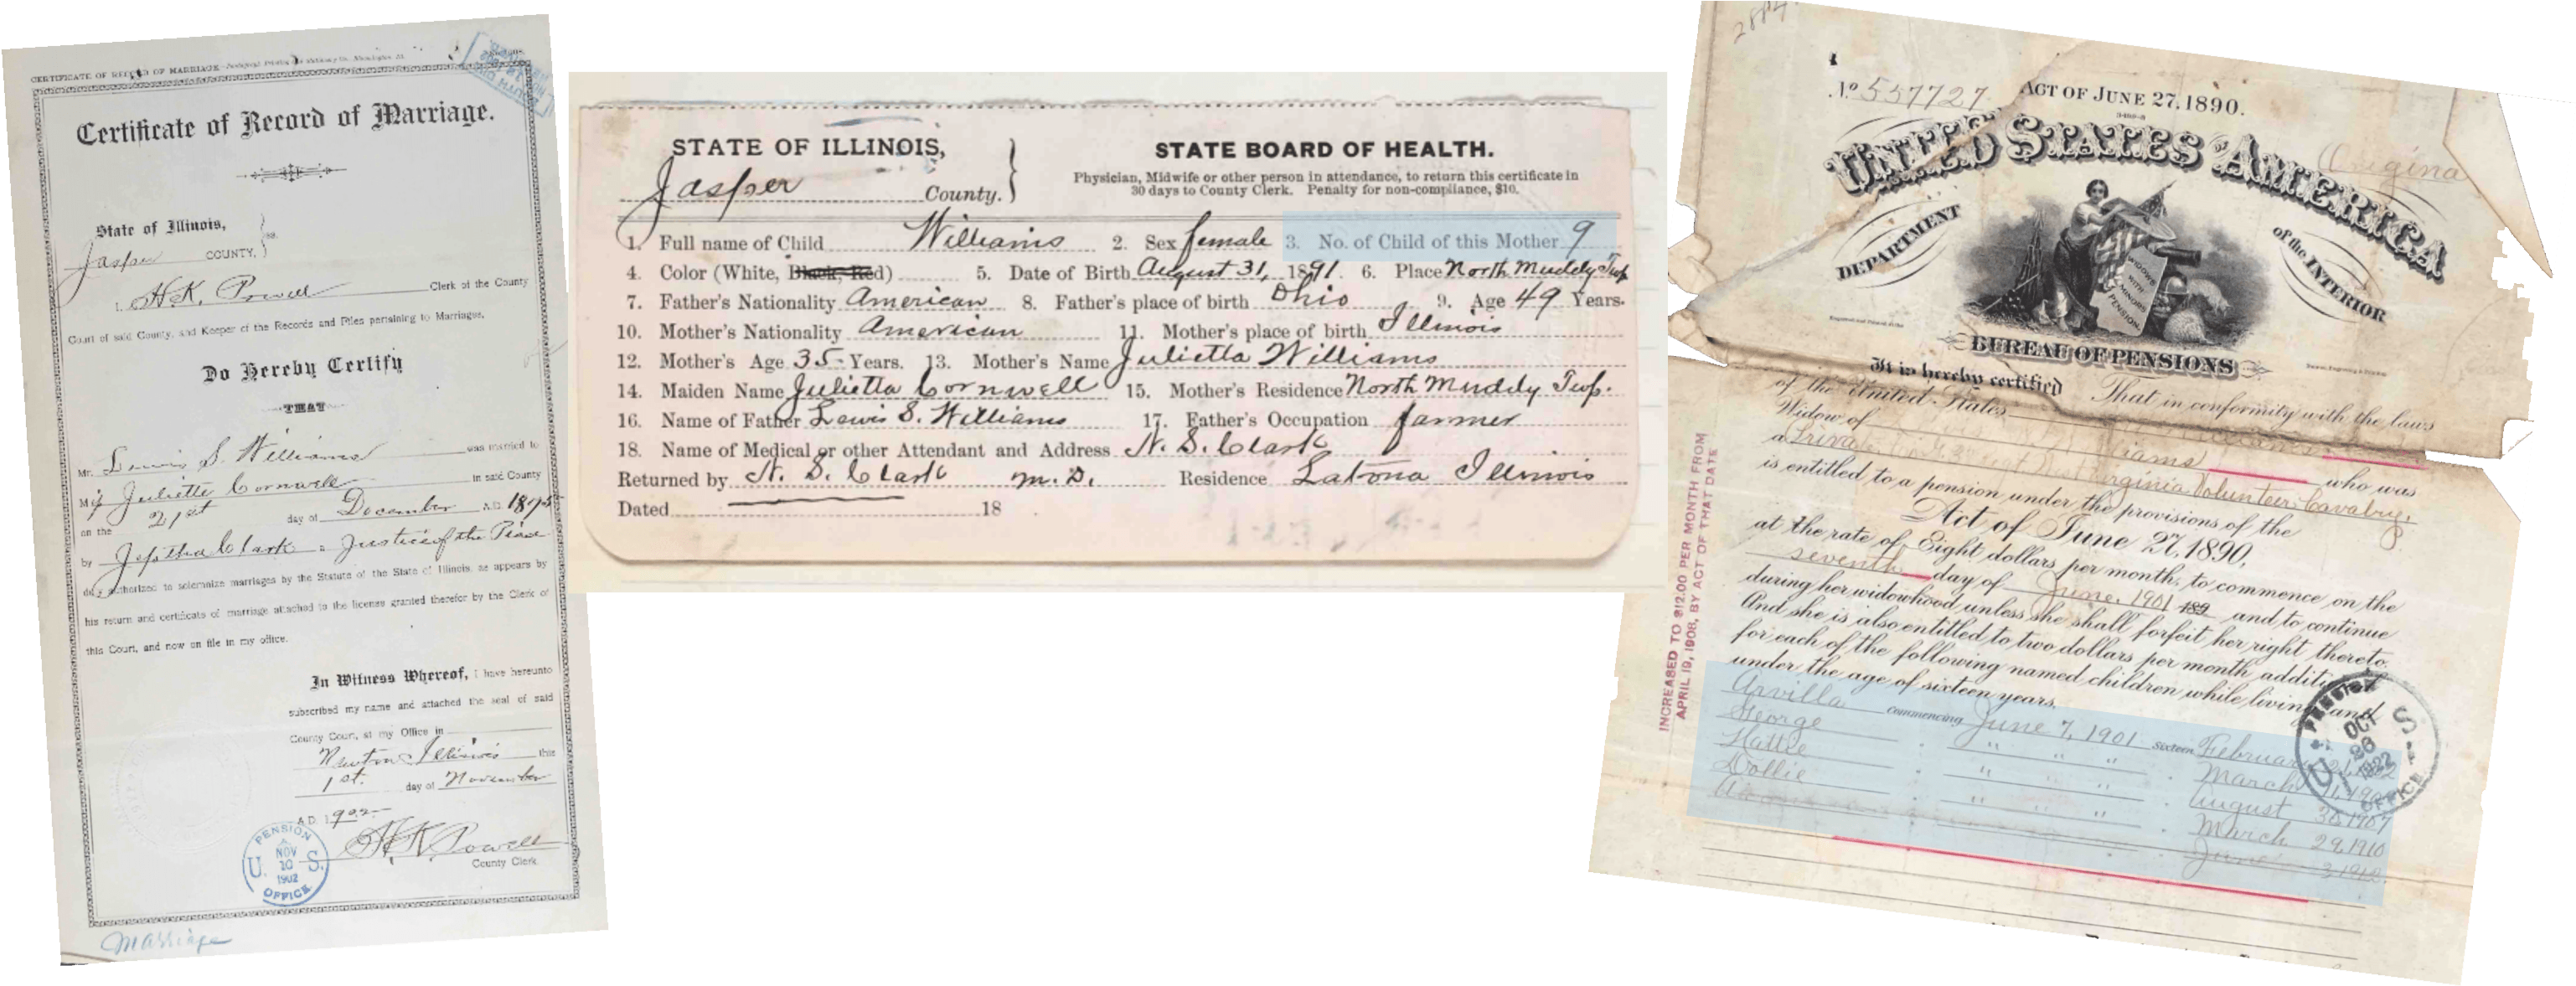 CERTIFICATE OF RECORD OF MARRIAGE
Certificate of Record of Marriage.
State of Illinois,
Jasper COUNTY, } ss.
I, H.K. Powell Clerk of the County
Court of said County, and Keeper of the Records and Files pertaining to Marriages,
Do Hereby Certify
THAT
Mr. Lewis S. Williams was married to
Miss Juliette Cornwell in said County
on the 21st day of December A.D. 1875
by Jeptha Clark a Justice of the Peace
duly authorized to solemnize marriages by the Statute of the State of Illinois, as appears by
his return and certificate of marriage attached to the license granted therefor by the Clerk of
this Court, and now on file in my office.
In Witness Whereof, I have hereunto
subscribed my name and attached the seal of said
County Court, at my Office in
Newton Illinois this
1st. day of November
A.D. 1902
H.K. Powell
County Clerk.
PENSION
U. S.
NOV
10
1902
OFFICE
Marriage
STATE OF ILLINOIS,
Jasper County. }
STATE BOARD OF HEALTH.
Physician, Midwife or other person in attendance, to return this certificate in
30 days to County Clerk. Penalty for non-compliance, $10.
1. Full name of Child Williams 2. Sex female 3. No. of Child of this Mother 9
4. Color (White, Black, Red) 5. Date of Birth August 31, 1891. 6. Place North Muddy Twp
7. Father's Nationality American 8. Father's place of birth Ohio 9. Age 49 Years.
10. Mother's Nationality American 11. Mother's place of birth Illinois
12. Mother's Age 35 Years. 13. Mother's Name Julietta Williams
14. Maiden Name Julietta Cornwell 15. Mother's Residence North Muddy Twp.
16. Name of Father Lewis S. Williams 17. Father's Occupation farmer
18. Name of Medical or other Attendant and Address N. S. Clark
Returned by N. S. Clark M.D. Residence Latona Illinois
Dated 18
No 557727. ACT OF JUNE 27, 1890.
3-468-a
UNITED STATES OF AMERICA
Origina
DEPARTMENT of the INTERIOR
WIDOWS
WITH
MINORS
PENSION.
BUREAU OF PENSIONS
It is hereby certified That in conformity with the laws
of the United States
Widow of Williams who was
a Private Virginia Volunteer Cavalry,
is entitled to a pension under the provisions of the
Act of June 27, 1890,
at the rate of Eight dollars per month, to commence on the
seventh day of June, 1901 189 and to continue
during her widowhood unless she shall forfeit her right thereto.
And she is also entitled to two dollars per month additional
for each of the following named children while living and
under the age of sixteen years.
Arvilla commencing June 7, 1901 sixteen February
George " " " March
Hattie " " " August 30, 1907
Dollie " " " March 29, 1910
June 3, 1912.
INCREASED TO $12.00 PER MONTH FROM
APRIL 19, 1908, BY ACT OF THAT DATE
PENSION
U S
OCT
28
1922
OFFICE